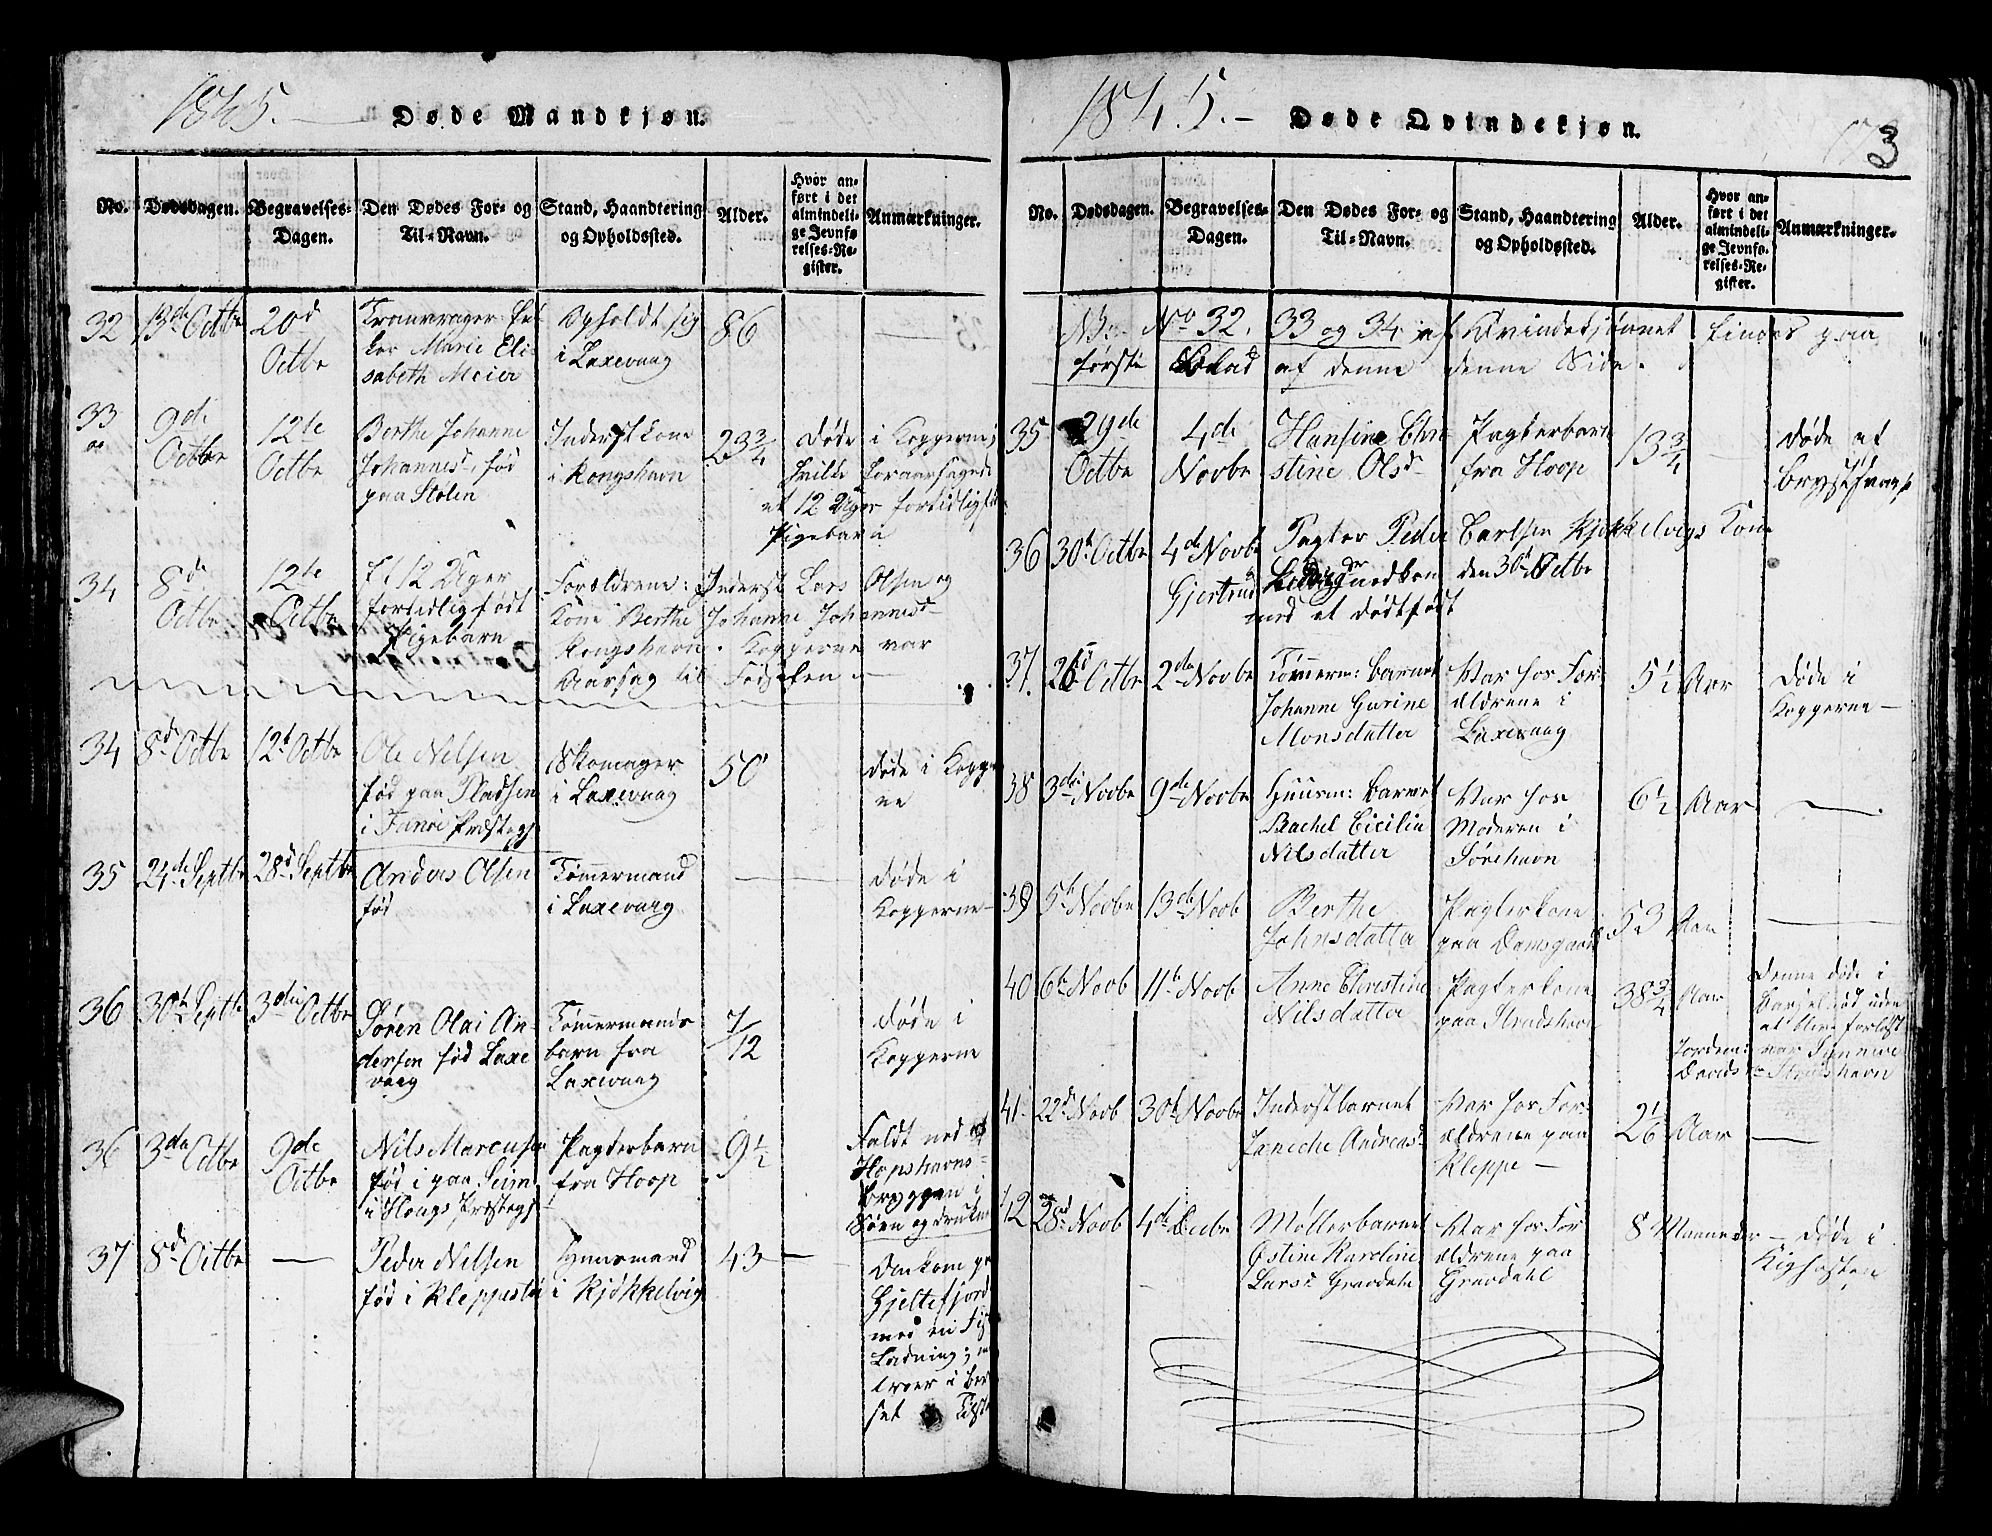 1845.
Døde Mandkjøn.
No.
Dødsdagen.
Begravelses-
Dagen.
Den Dødes For- og
Til-Navn.
Stand, Haandtering
og Opholdssted.
Alder.
Hvor an-
ført i det
almindeli-
ge Jevnfø-
relses-Re-
gister.
Anmærkninger.
32
13de Octbr
20d
Octbr
Enke Marie Eli-
sabeth Meier
Opholdt sig
i Laxevaag
86
33
9di
Octbr
12te
Octbr
Berthe Johanne
Johannesd. fød
paa Stolen
Inderstkone
i Kongshavn
23 3/4
Døde i Kopperne;
hvilke foraarsagede
et 12 Uger fortidligfødt
Pigebarn
34
8d
Octbr
12te
Octbr
Et 12 Uger
fortidlig født
Pigebarn
Forældrene: Inderst Lars Olsen og
Kone Berthe Johanne Johannesd.
Kongshavn. Kopperne var
Aarsag til Fødselen.
34
8d Octbr
12t Octbr
Ole Nilsen
fød paa Pladsen
i Fanøe Præstegj
Skomager
i Laxevaag
50
Døde i Kopper
ne
35
24de Septbr
28d Septbr
Anders Olsen
fød
Tømmermand
i Laxevaag
Døde i
Kopperne
36
30t Septbr
3die Octbr
Søren Olai An-
dersen fød Laxe
vaag
Tømmermands
barn fra
Laxevaag
7/12
Døde i
Kopperne
36
3de Octbr
9de
Octbr
Nils Marcusen
fød i paa Seim
i Hougs Præstegj
Pagterbarn
fra Hoop
9 1/2
Faldt ned af
Hopshavns-
bryggen i
Søen og drukn
37
8de Octbr
Peder Nilsen
fød i Kleppestø
Huusmand
i Kjøkkelvig
43
Omkom paa
Hjeltefjord
med en
Ladning;
1845.
Døde Qvindekjøn.
173
No.
Dødsdagen.
Begravelses-
Dagen.
Den Dødes For- og
Til-Navn.
Stand, Haandtering
og Opholdssted.
Alder.
Hvor an-
ført i det
almindeli-
ge Jevnfø-
relses-Re-
gister.
Anmærkninger.
NB: No 32. 33 og 34 af Qvindekjønnet findes paa
første Blad af denne denne Side.
35
29de
Octbr
4de
Novbr
Hansine Chri
stine Olsd
Pagterbarn
fra Hoop
13 3/4
Døde af
Brystsvag
36
30t Octbr
4de Novbr
Pagter Peder Carlsen Kjøkkelvigs Kone
Gjertrud nedkom den 30t Octbr
med et dødtfødt
37.
26d Octbr
2de Novbr
Tømmerm: barnet
Johanne Gurine
Monsdatter
Var hos For
ældrene i
Laxevaag
5 1/2 Aar
Døde i
Kopperne
38
3di Novbr
9de Novbr
Huusm: barnet
Rachel Cicilia
Nilsdatter
Var hos
Moderen i
Sørehavn
6 1/2 Aar
39
5t Novbr
13de Novb
Berthe
Johnsdatter
Pagterkone
paa Damsgaard
53 Aar
40
6t Novb
11te Novb
Anne Christine
Nilsdatter
Pagterkone
paa Stradshavn
38 3/4 Aar
Denne døde i
Barselnød uden
at blive forløst
Jordem: var
41
22d Novb
30t Novbr
Inderstbarnet
Janiche Andreasd
Var hos For-
ældrene paa
Kleppe
Aar
42
28d Novb
4de Decbr
Møllerbarnet
Østine Karoline
Larsd. Gravdahl
Var hos For
ældrene paa
Gravdahl
8 Maaneder
Døde i
Kighosten